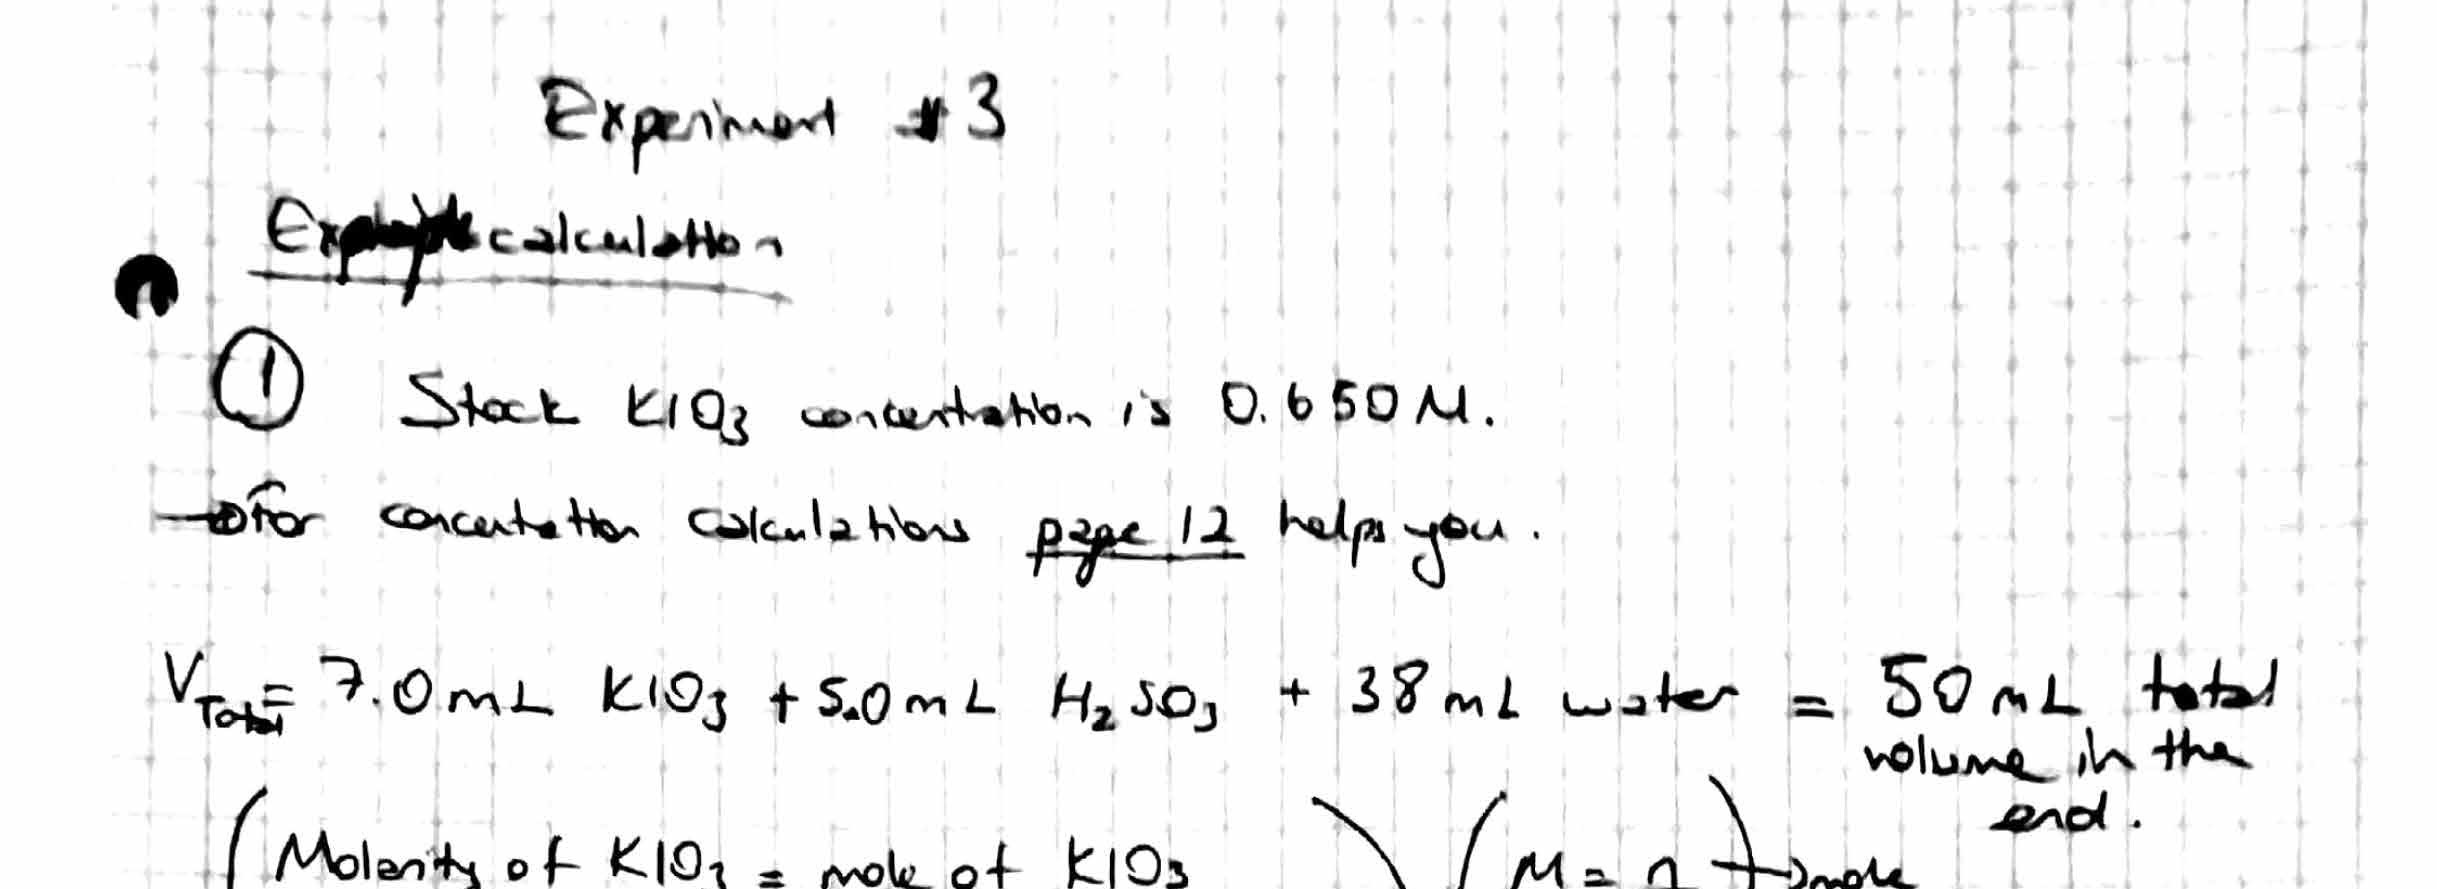 Experiment #3
Example calculation
① Stock KIO₃ concentration is 0.650 M.
→ For concentration calculations page 12 helps you.
V_Total = 7.0 mL KIO₃ + 5.0 mL H₂SO₃ + 38 mL water = 50 mL total
volume in the
end.
(Molarity of KIO₃ = mole of KIO₃) (M = n → mole